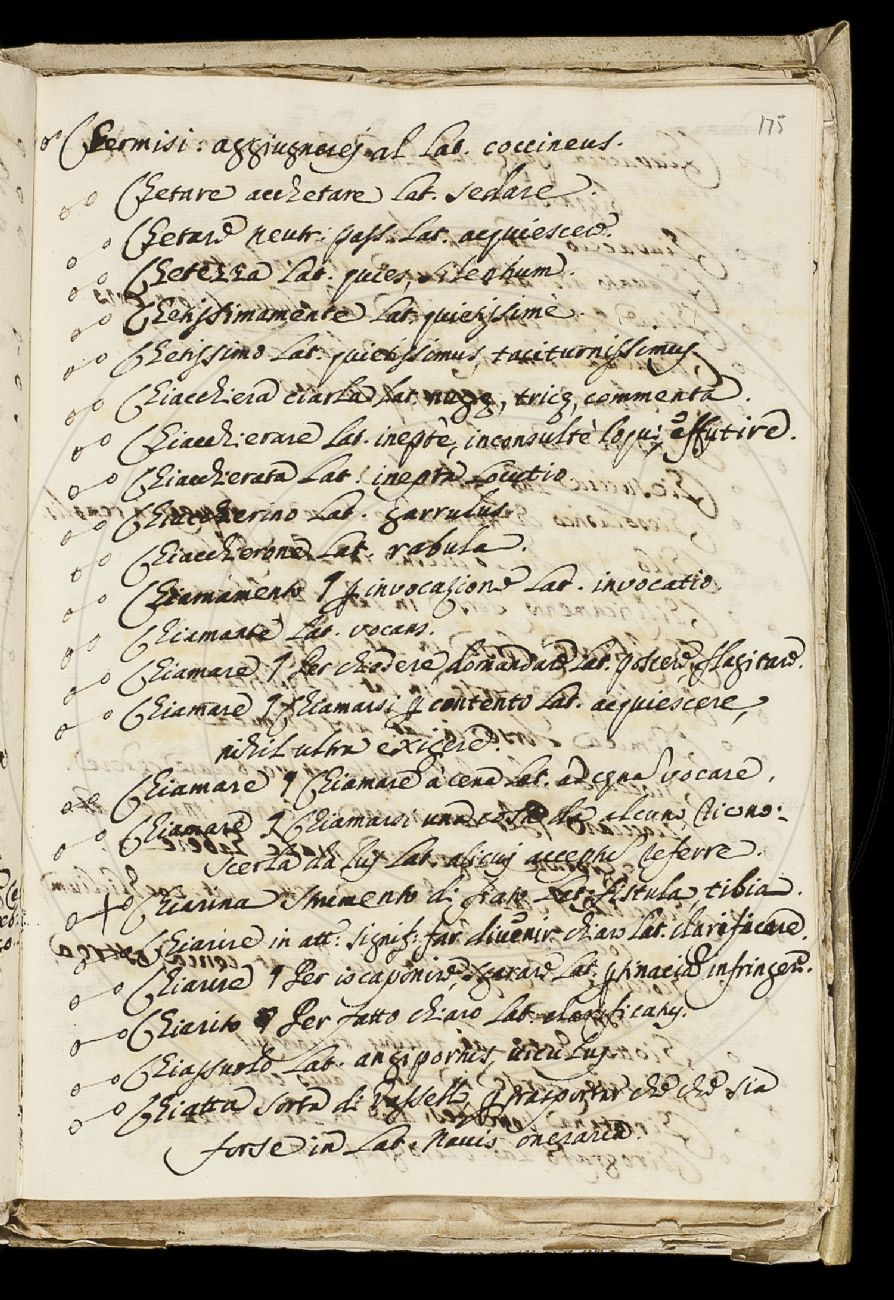 175
Chermisi: aggiugnerei al Lat. coccineus.
Chetare acchetare Lat. sedare.
Chetare neutr: pass. Lat. acquiescere.
Chetezza Lat. quies, silentium.
Chetissimamente Lat. quietissimè.
Chetissimo Lat. quietissimus, taciturnissimus,
Chiacchiera ciarla Lat. nugę, tricę, commenta.
Chiacchierare Lat. ineptè, inconsultè loqui, effutire.
Chiacchierata Lat. inepta Locutio
Chiaccherino Lat. garrulus.
Chiaccherone Lat. rabula.
Chiamamento ¶ p invocazione Lat. invocatio.
Chiamante Lat. vocans.
Chiamare ¶ Per chiedere, domandare Lat. poscere, flagitare.
Chiamare ¶ Chiamarsi p contento Lat. acquiescere,
nihil ultra exigere.
Chiamare ¶ Chiamare a cena Lat. ad cęna vocare.
Chiamare ¶ Chiamarsi una cosa da alcuno, ricono:
scerla da lui Lat. alicui acceptū referre.
Chiarina strumento di fiato Lat. fistula, tibia.
Chiarire in att: signif: far divenir chiaro Lat. clarificare.
Chiarire ¶ Per iscaponire, sgarare Lat. ptinaciā infringere.
Chiarito ¶ Per fatto chiaro Lat. clarificatus.
Chiassuolo Lat. angiportus, viculus
Chiatta sorta di Vassello p trasportar che che sia
forse in Lat. Navis oneraria.